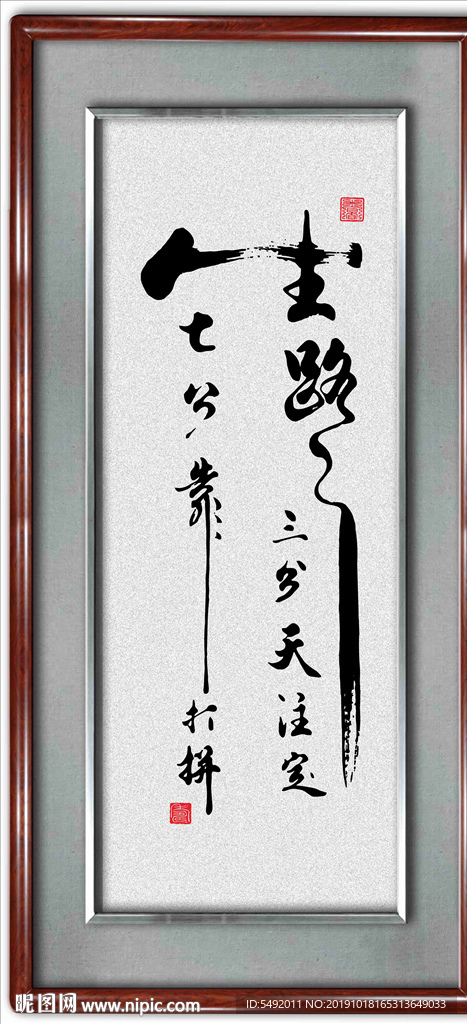 人生路
三分天注定
七分靠打拼
昵图网 www.nipic.com
ID:5492011 NO:20191018165313649033